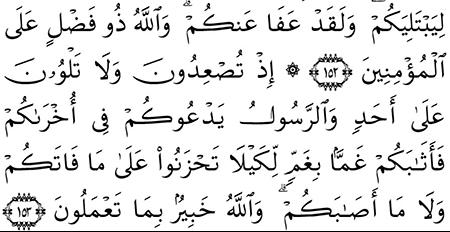 لِيَبْتَلِيَكُمْ ۖ وَلَقَدْ عَفَا عَنكُمْ ۗ وَاللَّهُ ذُو فَضْلٍ عَلَى
الْمُؤْمِنِينَ ﴿١٥٢﴾ ۞ إِذْ تُصْعِدُونَ وَلَا تَلْوُۥنَ
عَلَىٰ أَحَدٍ وَالرَّسُولُ يَدْعُوكُمْ فِى أُخْرَىٰكُمْ
فَأَثَـٰبَكُمْ غَمًّۢا بِغَمٍّ لِّكَيْلَا تَحْزَنُوا۟ عَلَىٰ مَا فَاتَكُمْ
وَلَا مَا أَصَـٰبَكُمْ ۗ وَاللَّهُ خَبِيرٌۢ بِمَا تَعْمَلُونَ ﴿١٥٣﴾